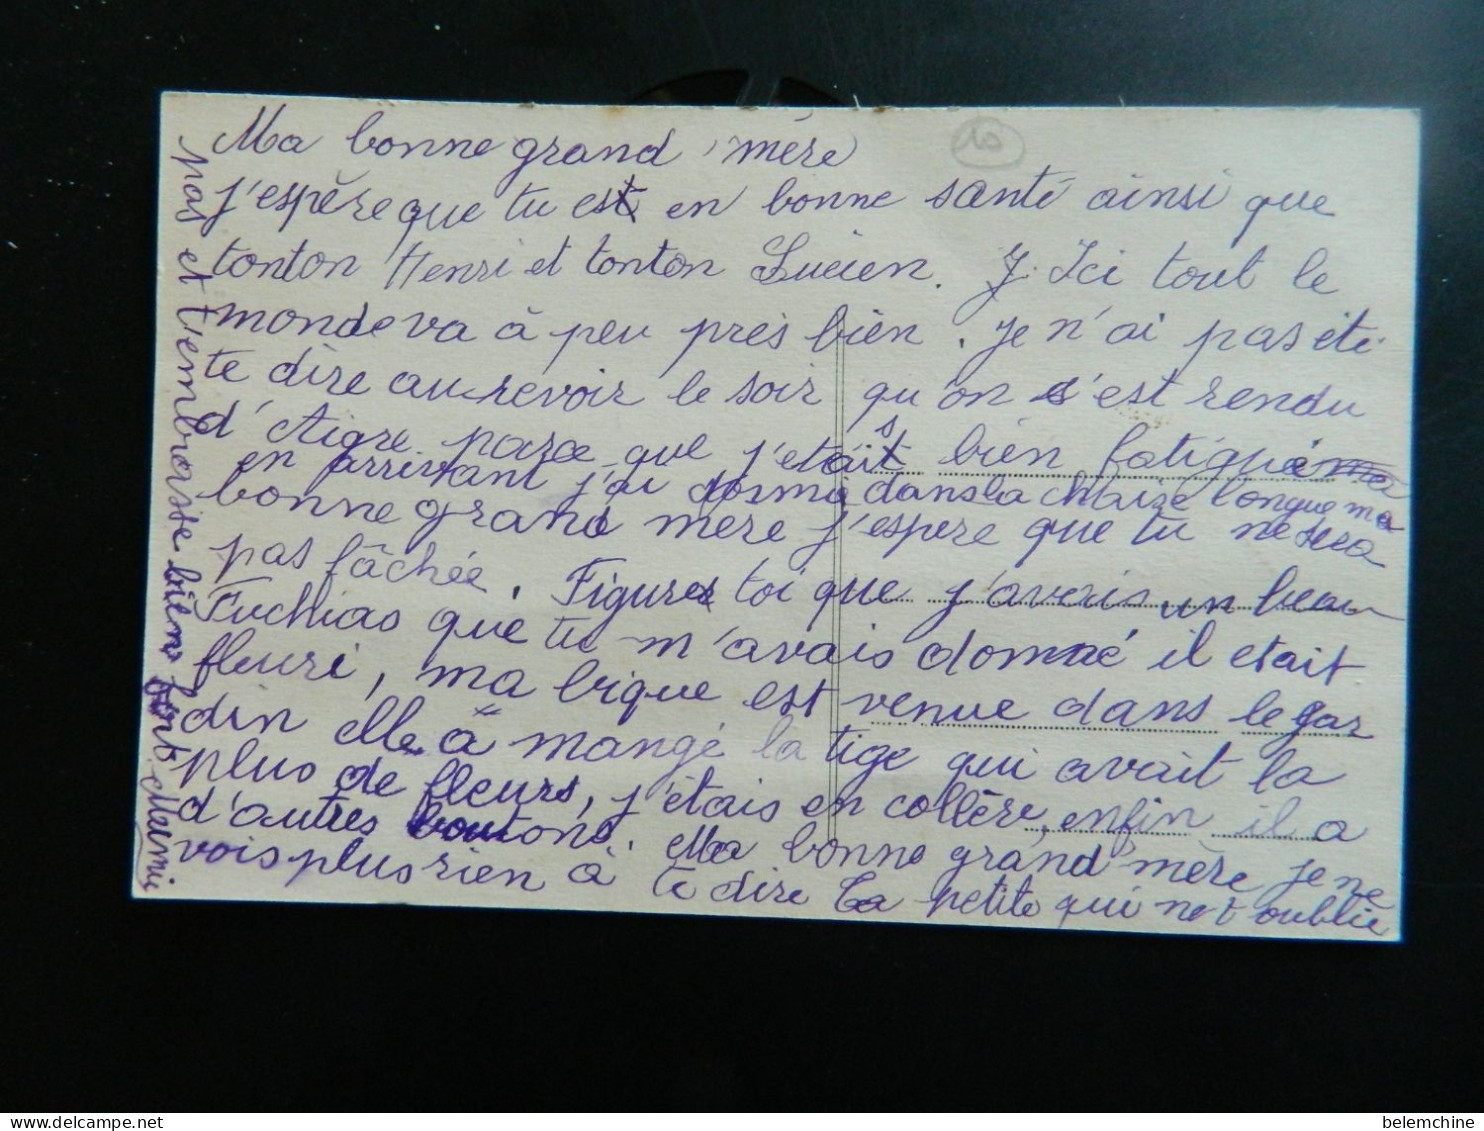 Ma bonne grand mère
10
j'espère que tu est en bonne santé ainsi que
tonton Henri et tonton Lucien. J. Ici tout le
monde va à peu près bien. je n'ai pas été
te dire au revoir le soir qu'on s'est rendu
d'Aigre parce que j'etais bien fatigué
en arrivant j'ai dormi dans la chaize longue ma
bonne grand mère j'espère que tu ne sera
pas fâchée. Figures toi que j'avais un beau
Fuchias que tu m'avais donné il etait
fleuri, ma bique est venue dans le gar
din elle à mangé la tige qui avait la
plus de fleurs, j'étais en collère, enfin il a
d'autres boutons. Ma bonne grand mère je ne
vois plus rien à te dire Ta petite qui ne t'oublie
pas et t'embrasse bien fort Mimi
belemchine